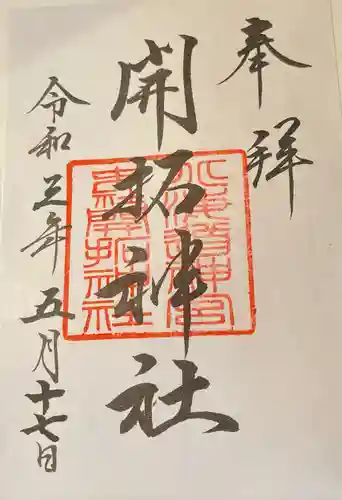 奉拝
開拓神社
北海道神宮
末社開拓神社
令和五年五月十七日